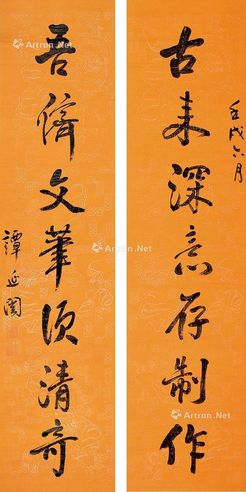 壬戌六月
古来深意存制作
吾侪文筆须清奇
譚延闓
Artron.Net
Artron.Net
Artron.Net
Artron.Net